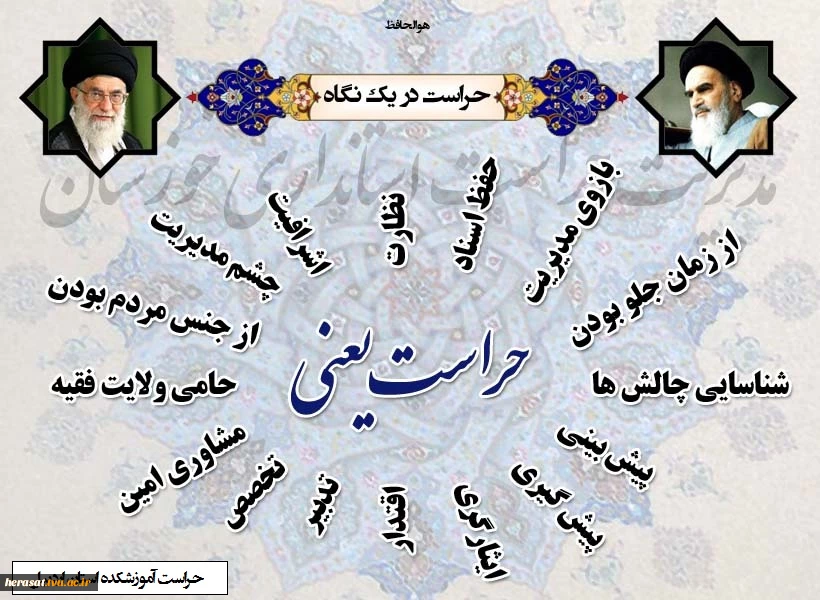 هوالحافظ
حراست در یک نگاه
مدیریت حراست استانداری خوزستان
حراست یعنی
بازوی مدیریت
از زمان جلو بودن
شناسایی چالش ها
پیش بینی
پیش گیری
ایثارگری
اقتدار
تدبیر
تخصص
مشاوری امین
حامی ولایت فقیه
از جنس مردم بودن
چشم مدیریت
اشرافیت
نظارت
حفظ اسناد
حراست آموزشکده
herasat.tvu.ac.ir